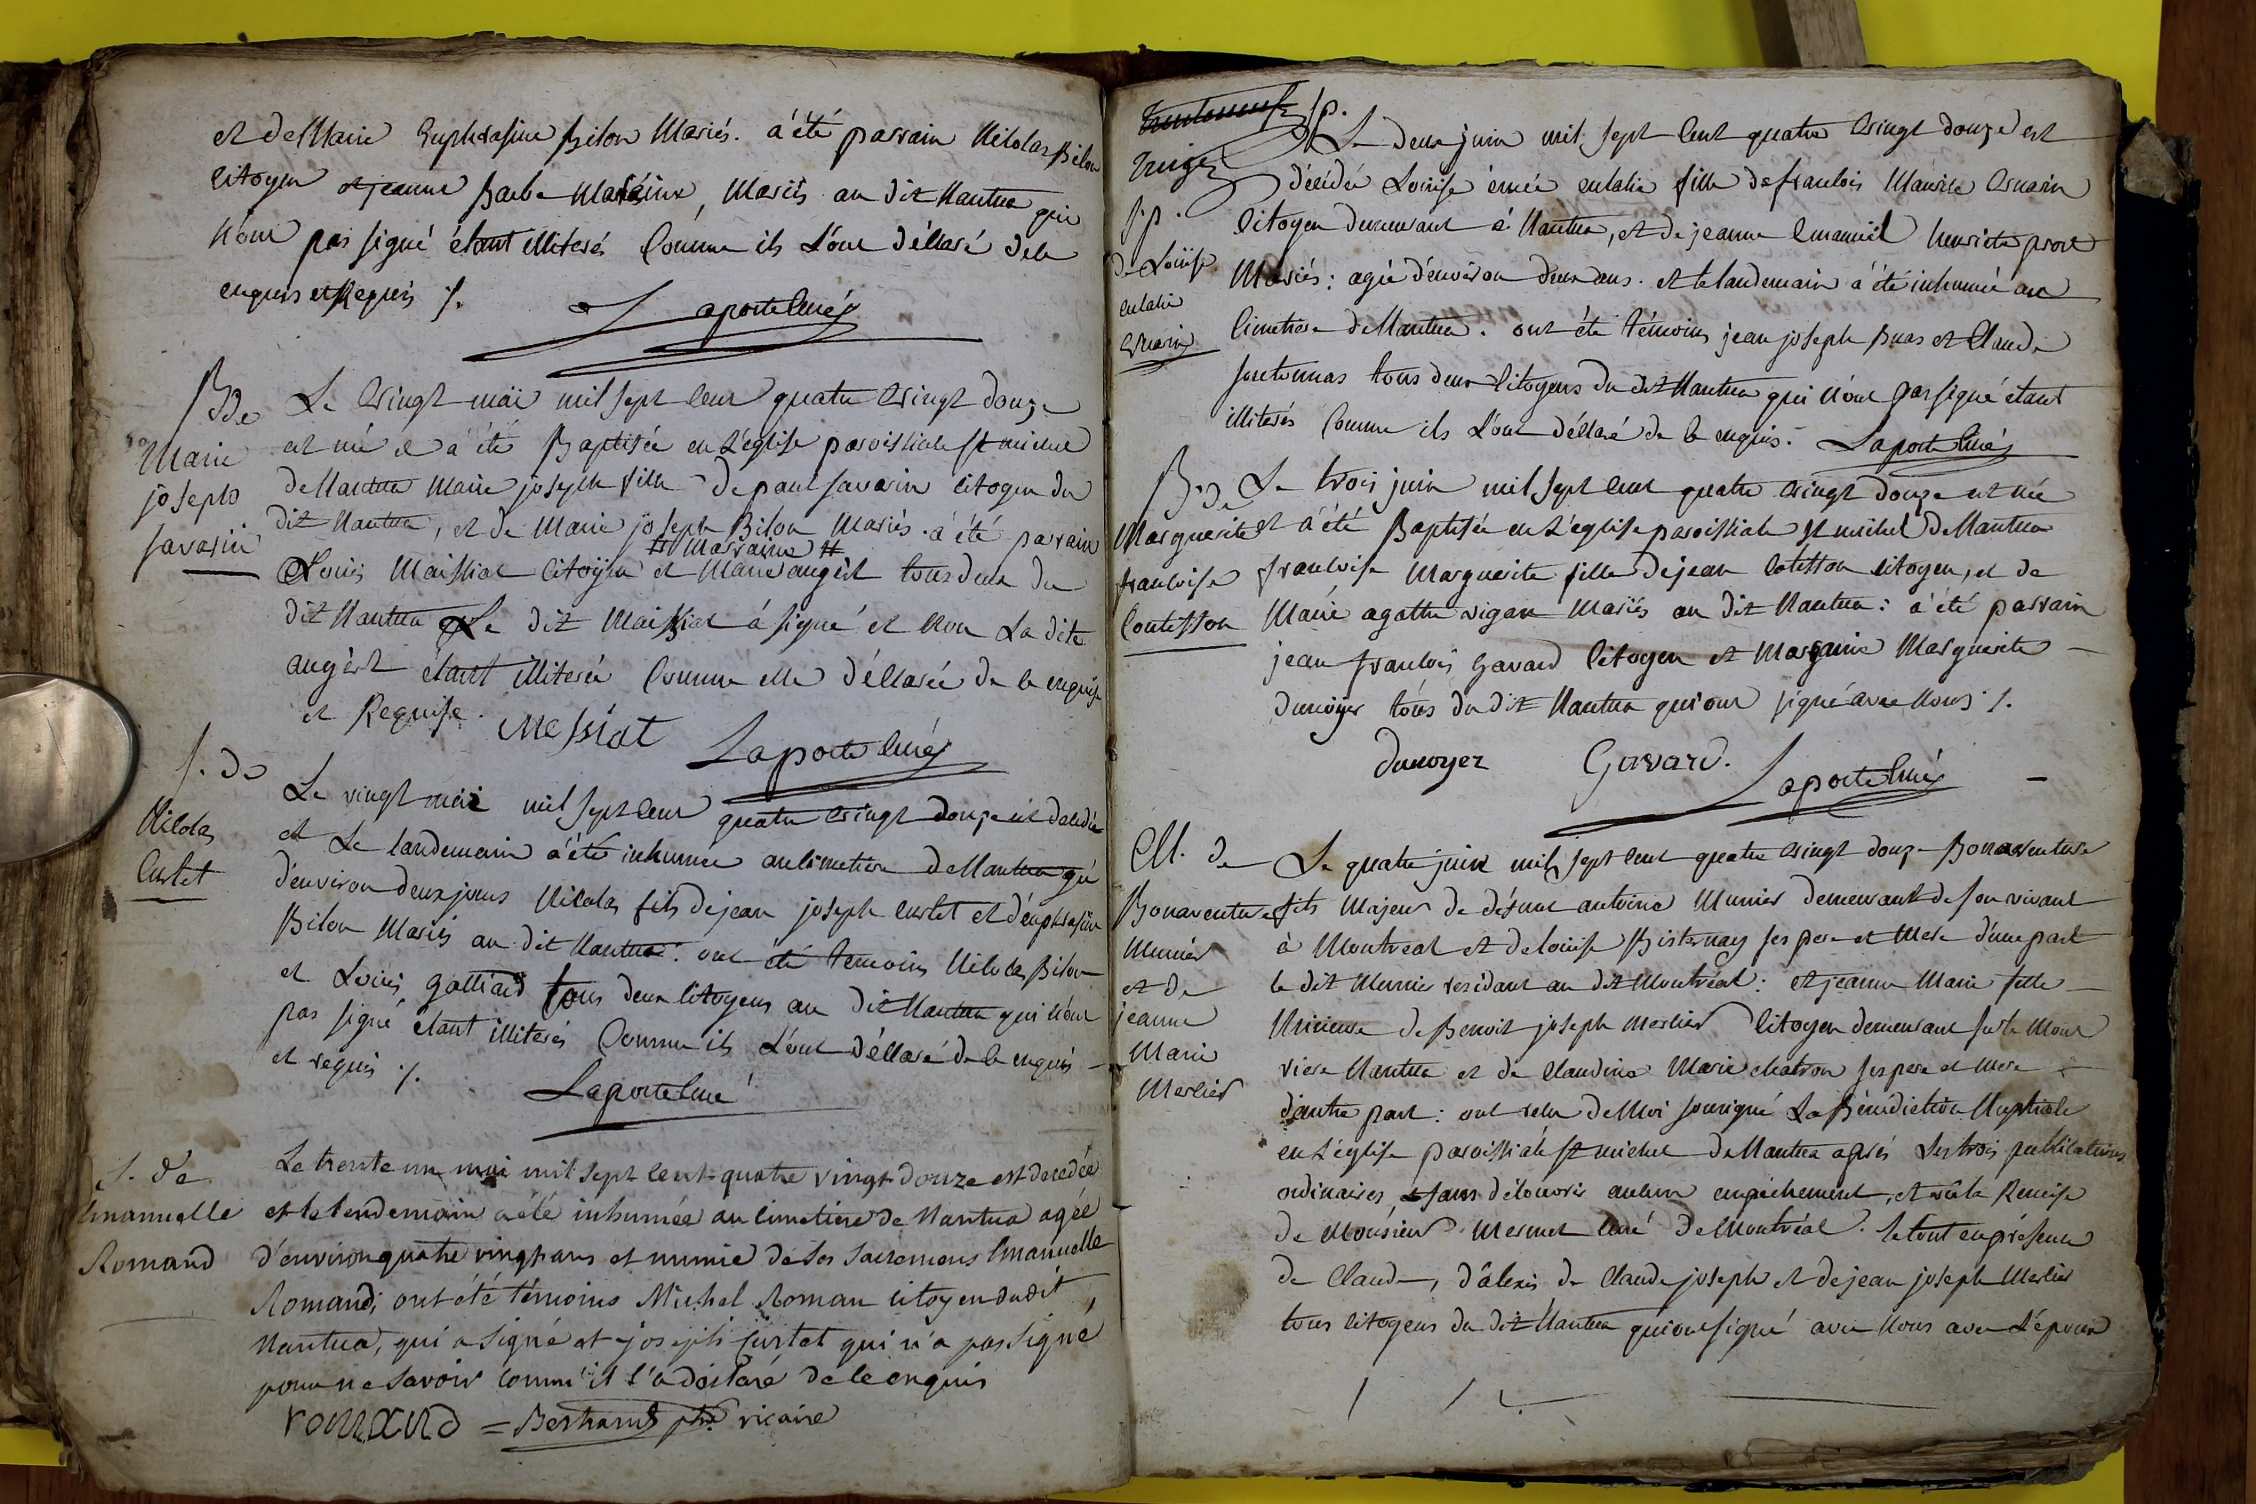 et de Marie Euphrasine Bilon Mariés. a'été parrain Nicolas Bilon
citoyen et jeanne Barbe Mariés au dit Nantua qui
n'ont pas signé étant illiterés Comme ils L'ont déllaré de le
enquis et Requis ./.
Laporte Curé
B. de
Marie
joseph
Savarin
Le vingt mäi mil sept cent quatre vingt douze
est né et a'été Baptisée en L'église paroissiale St michel
de Nantua Marie joseph fille de paul Savarin citoyen du
dit Nantua, et de Marie joseph Bilon Mariés. a'été parrain
# Marraine #
Louis Maissiat Citoÿen et Marie augèrt tous deux du
dit Nantua Le dit Maissiat á signé et Non La dite
augèrt étant illiterée Comme elle déllarée de le enquise
et Requise.
Messiat
Laporte Curé
S. de
Nicolas
Curtet
Le vingt mäi mil sept cent quatre vingt douze est décedé
et Le landemain a'été inhumée au cimetiere de Nantua agé
d'environ deux jours Nicolas fils de jean joseph Curtet et d'euphrasine
Bilon Mariés au dit Nantua : ont été temoins Nicolas Bilon
et Louis galliard tous deux Citoyens au dit Nantua qui n'ont
pas signé étant illiterés Comme ils L'ont déllaré de le enquis
et requis ./.
Laporte Curé
S. de
Emanuelle
Romand
Le trente un mai mil sept cent quatre vingt douze est decedée
et le lendemain a été inhumée au cimetiere de Nantua agée
d'environ quatre vingt ans et munie de ses sacremens Emanuelle
Romand; ont été témoins Michel Roman citoyen dudit
Nantua, qui a signé et joseph Curtet qui n'a pas signé
pour ne savoir comm'il l'a déclaré de le enquis
romand = Bertrand ptre vicaire
S.p.
de Louise
eulalie
Le deux juin mil sept cent quatre vingt douze est
décédée Louise eulalie fille de francois Maurice
Citoyen demeurant à Nantua, et de jeanne Emanuel henriete
Mariés : agée d'environ deux ans. et le landemain a été inhumée au
Cimetiere de Nantua. ont été témoins jean joseph Buas et Claude
tous deux Citoyens du dit Nantua qui n'ont pas signé étant
illiterés Comme ils L'ont déllaré de le enquis. Laporte Curé
B. de
Marguerite
francoise
Contesson
Le trois juin mil sept cent quatre vingt douze est née
et a'été Baptisée en L'église paroissiale St michel de Nantua
francoise Marguerite fille de jean citoyen, et de
Marie agathe Mariés au dit Nantua : a'été parrain
jean francois Gavard Citoyen et Marraine Marguerite
dunoÿer tous du dit Nantua qui ont signé avec Nous ./.
dunoyer Gavard. Laporte Curé
M. de
Bonaventure
Munier
et de
jeanne
Marie
Merlier
Le quatre juin mil sept cent quatre vingt douze Bonaventure
fils Majeur de défunt antoine Munier demeurant de son vivant
à Montreal et de louise ses pere et Mere d'une part
le dit Munier residant au dit Montréal : et jeanne Marie fille
Mineure de Benoit joseph Merlier Citoyen demeurant sur le Mont
Nantua et de Claudine Marie chatron ses pere et Mere
d'autre part : ont reçu de Moi soussigné La Bénédiction Nuptiale
en L'église paroissiale St michel de Nantua après Les trois publications
ordinaires sans découvrir aucun empéchement, et vû la Remise
de Monsieur Mermet Curé de Montréal. le tout en présence
de Claude, d'alexis de Claude joseph et de jean joseph Merlier
tous Citoyens du dit Nantua qui ont signé avec Nous avec L'époux